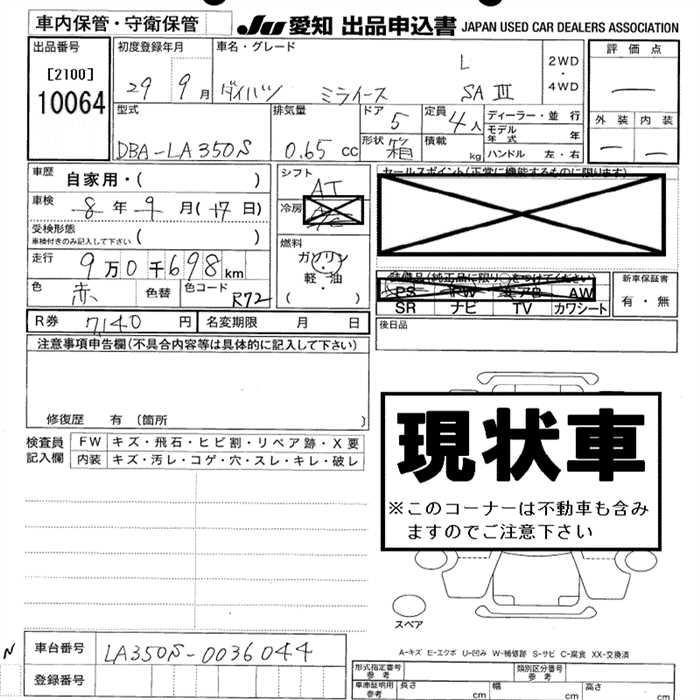 車内保管・守衛保管
JU 愛知 出品申込書 JAPAN USED CAR DEALERS ASSOCIATION
出品番号
[2100]
10064
初度登録年月
29 9月
車名・グレード
ダイハツ ミライース
L
SA III
2WD
・
4WD
評価点
—
外装 内装
— —
型式
DBA-LA350S
排気量
0.65 cc
ドア 5
形状 箱
定員 4人
積載 kg
ディーラー・並行
モデル年式 年
ハンドル 左・右
車歴 自家用・( )
車検 8年9月(17日)
受検形態
車検付きのみ記入して下さい ( )
走行 9万0千698km
色 赤 色替 色コード R72
シフト AT
冷房
燃料
ガソリン
軽・油
( )
セールスポイント(正常に機能するものに限ります)
装備品(純正品に限り○をつけてください)
PS PW AB AW
SR ナビ TV カワシート
新車保証書
有・無
後日品
R券 7140円 名変期限 月 日
注意事項申告欄(不具合内容等は具体的に記入して下さい)
修復歴 有 (箇所 )
検査員
記入欄
FW キズ・飛石・ヒビ割・リペア跡・X要
内装 キズ・汚レ・コゲ・穴・スレ・キレ・破レ
現状車
※このコーナーは不動車も含み
ますのでご注意下さい
スペア
A-キズ E-エクボ U-凹み W-補修跡 S-サビ C-腐食 XX-交換済
N
車台番号 LA350S-0036044
登録番号
形式指定番号
参考
類別区分番号
参考
車庫証明用
参考
長さ cm 幅 cm 高さ cm